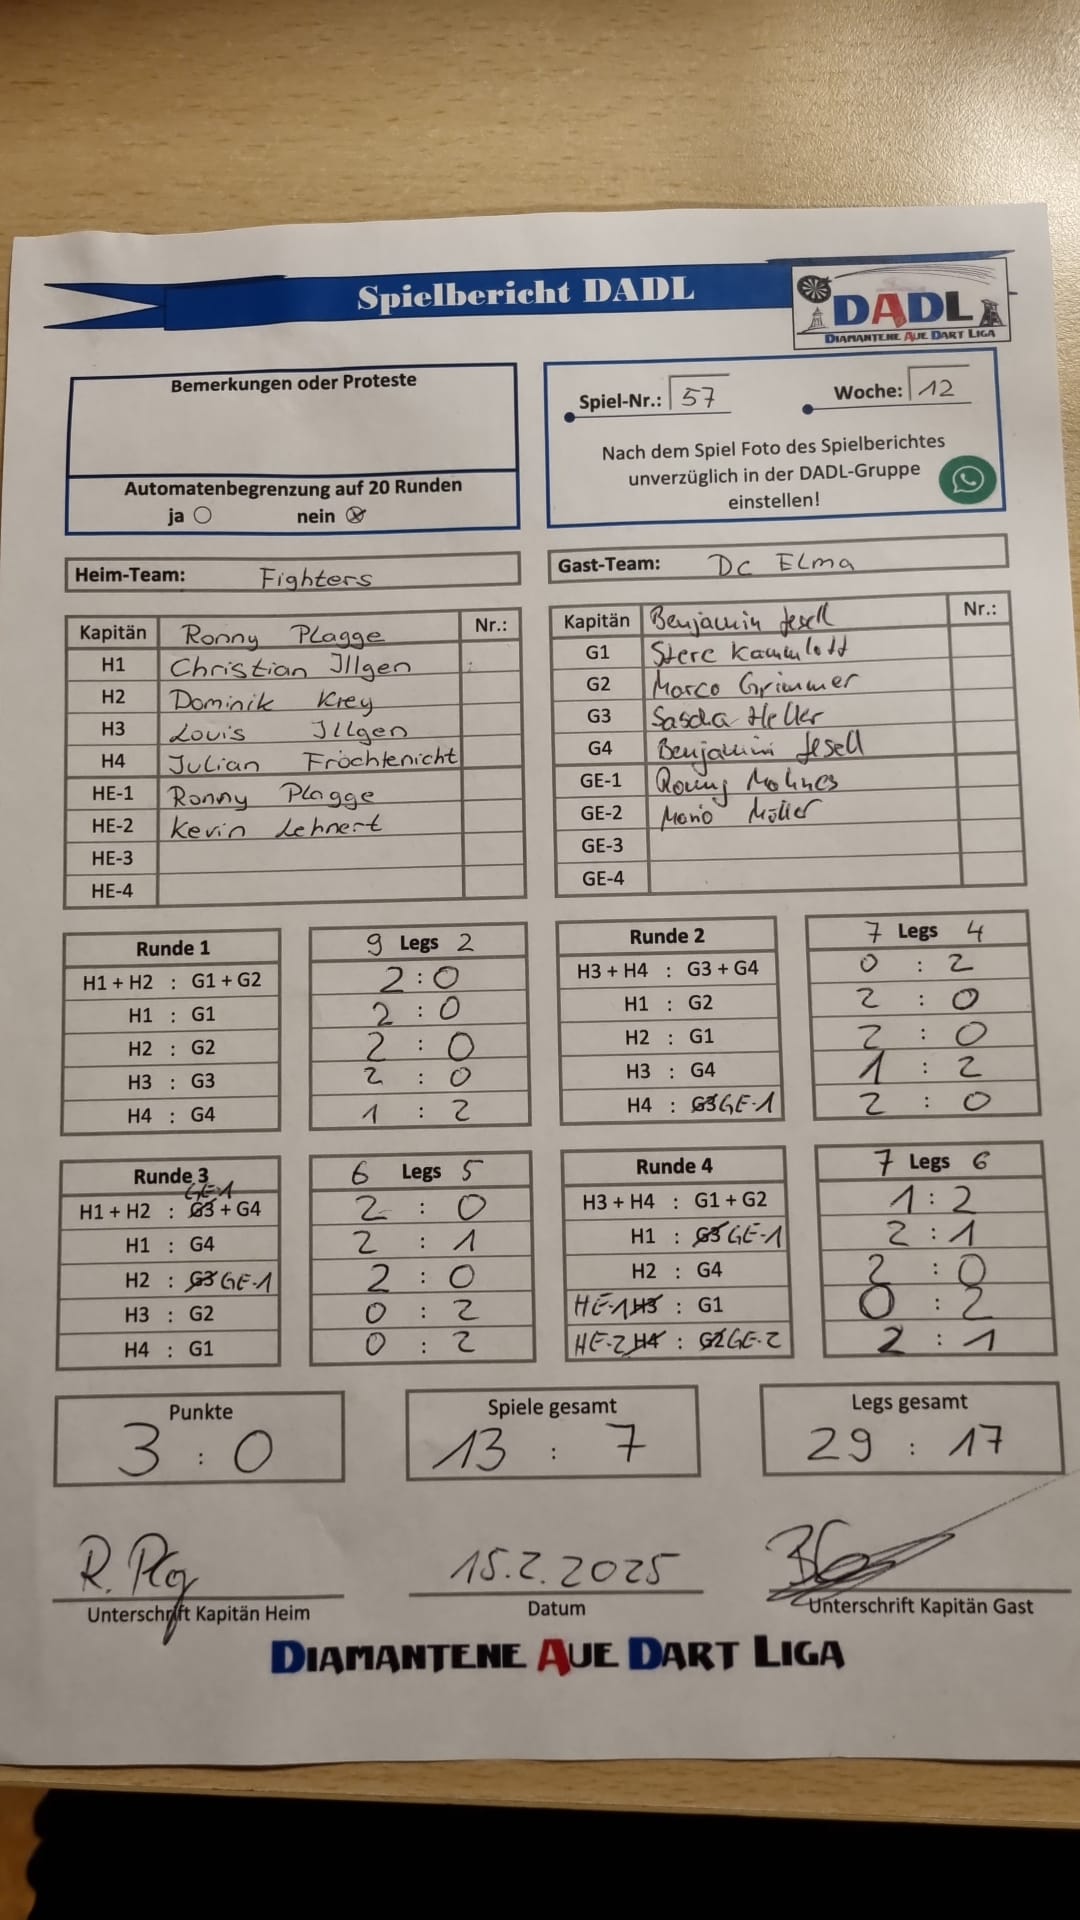 Spielbericht DADL
DADL
DIAMANTENE AUE DART LIGA
Bemerkungen oder Proteste
Automatenbegrenzung auf 20 Runden
ja nein
Spiel-Nr.: 57 Woche: 12
Nach dem Spiel Foto des Spielberichtes
unverzüglich in der DADL-Gruppe
einstellen!
Heim-Team: Fighters
Gast-Team: Dc Elma
Kapitän Ronny Plagge Nr.:
H1 Christian Illgen
H2 Dominik Krey
H3 Louis Illgen
H4 Julian Fröchtenicht
HE-1 Ronny Plagge
HE-2 Kevin Lehnert
HE-3
HE-4
Kapitän Benjamin Nr.:
G1 Kammlott
G2 Marco Grimmer
G3 Sascha Heller
G4 Benjamin
GE-1
GE-2 Müller
GE-3
GE-4
Runde 1 9 Legs 2
H1 + H2 : G1 + G2 2 : 0
H1 : G1 2 : 0
H2 : G2 2 : 0
H3 : G3 2 : 0
H4 : G4 1 : 2
Runde 2 7 Legs 4
H3 + H4 : G3 + G4 0 : 2
H1 : G2 2 : 0
H2 : G1 2 : 0
H3 : G4 1 : 2
H4 : G3 GE-1 2 : 0
Runde 3 6 Legs 5
GE-1
H1 + H2 : G3 + G4 2 : 0
H1 : G4 2 : 1
H2 : G3 GE-1 2 : 0
H3 : G2 0 : 2
H4 : G1 0 : 2
Runde 4 7 Legs 6
H3 + H4 : G1 + G2 1 : 2
H1 : G3 GE-1 2 : 1
H2 : G4 2 : 0
HE-1 H3 : G1 0 : 2
HE-2 H4 : G2 GE-2 2 : 1
Punkte
3 : 0
Spiele gesamt
13 : 7
Legs gesamt
29 : 17
15.2.2025
Unterschrift Kapitän Heim
Datum
Unterschrift Kapitän Gast
DIAMANTENE AUE DART LIGA